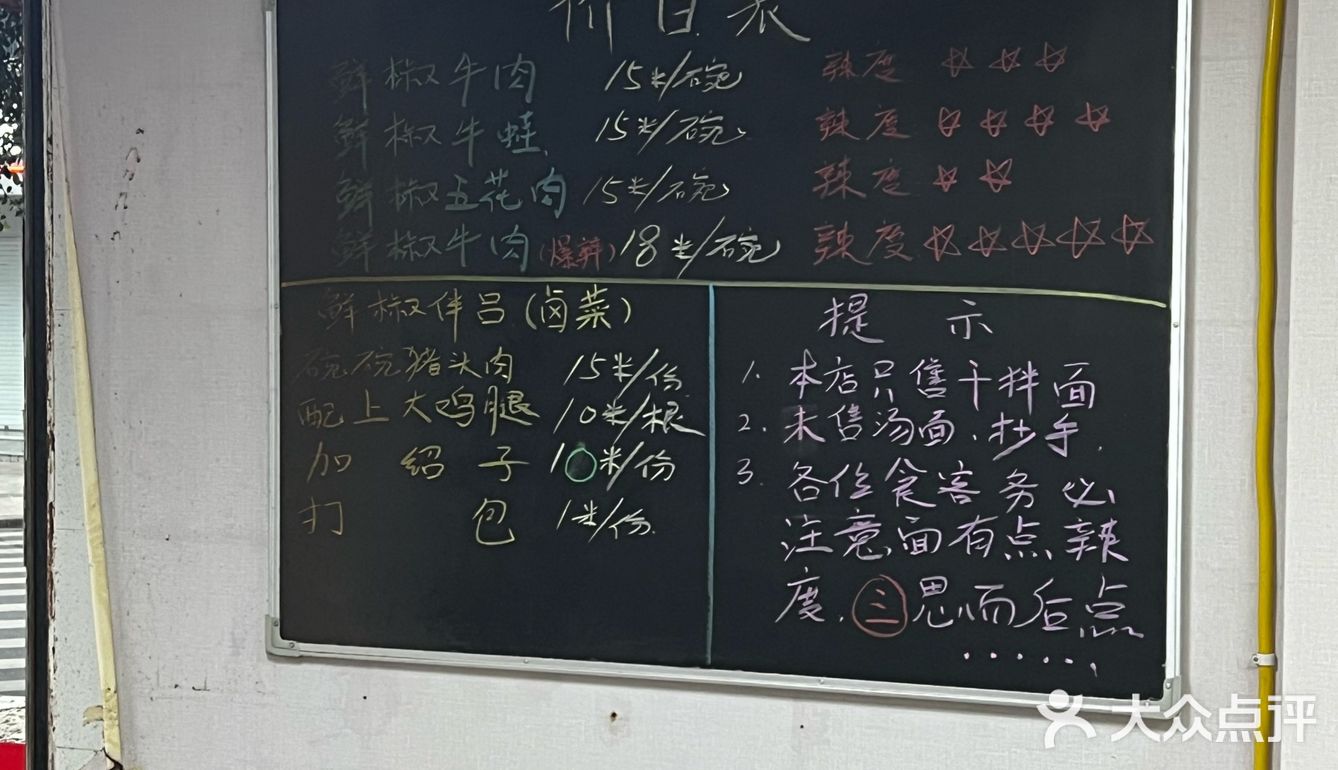 价目表
鲜椒牛肉 15米/碗 辣度 ☆☆☆
鲜椒牛蛙 15米/碗 辣度 ☆☆☆☆
鲜椒五花肉 15米/碗 辣度 ☆☆
鲜椒牛肉(爆辣) 18米/碗 辣度 ☆☆☆☆☆
鲜椒伴吕(卤菜)
碗碗猪头肉 15米/份
配上大鸡腿 10米/根
加绍子 10米/份
打包 1米/份
提示
1. 本店只售干拌面
2. 未售汤面、抄手.
3. 各位食客务必
注意面有点辣
度,三思而后点
......,
大众点评